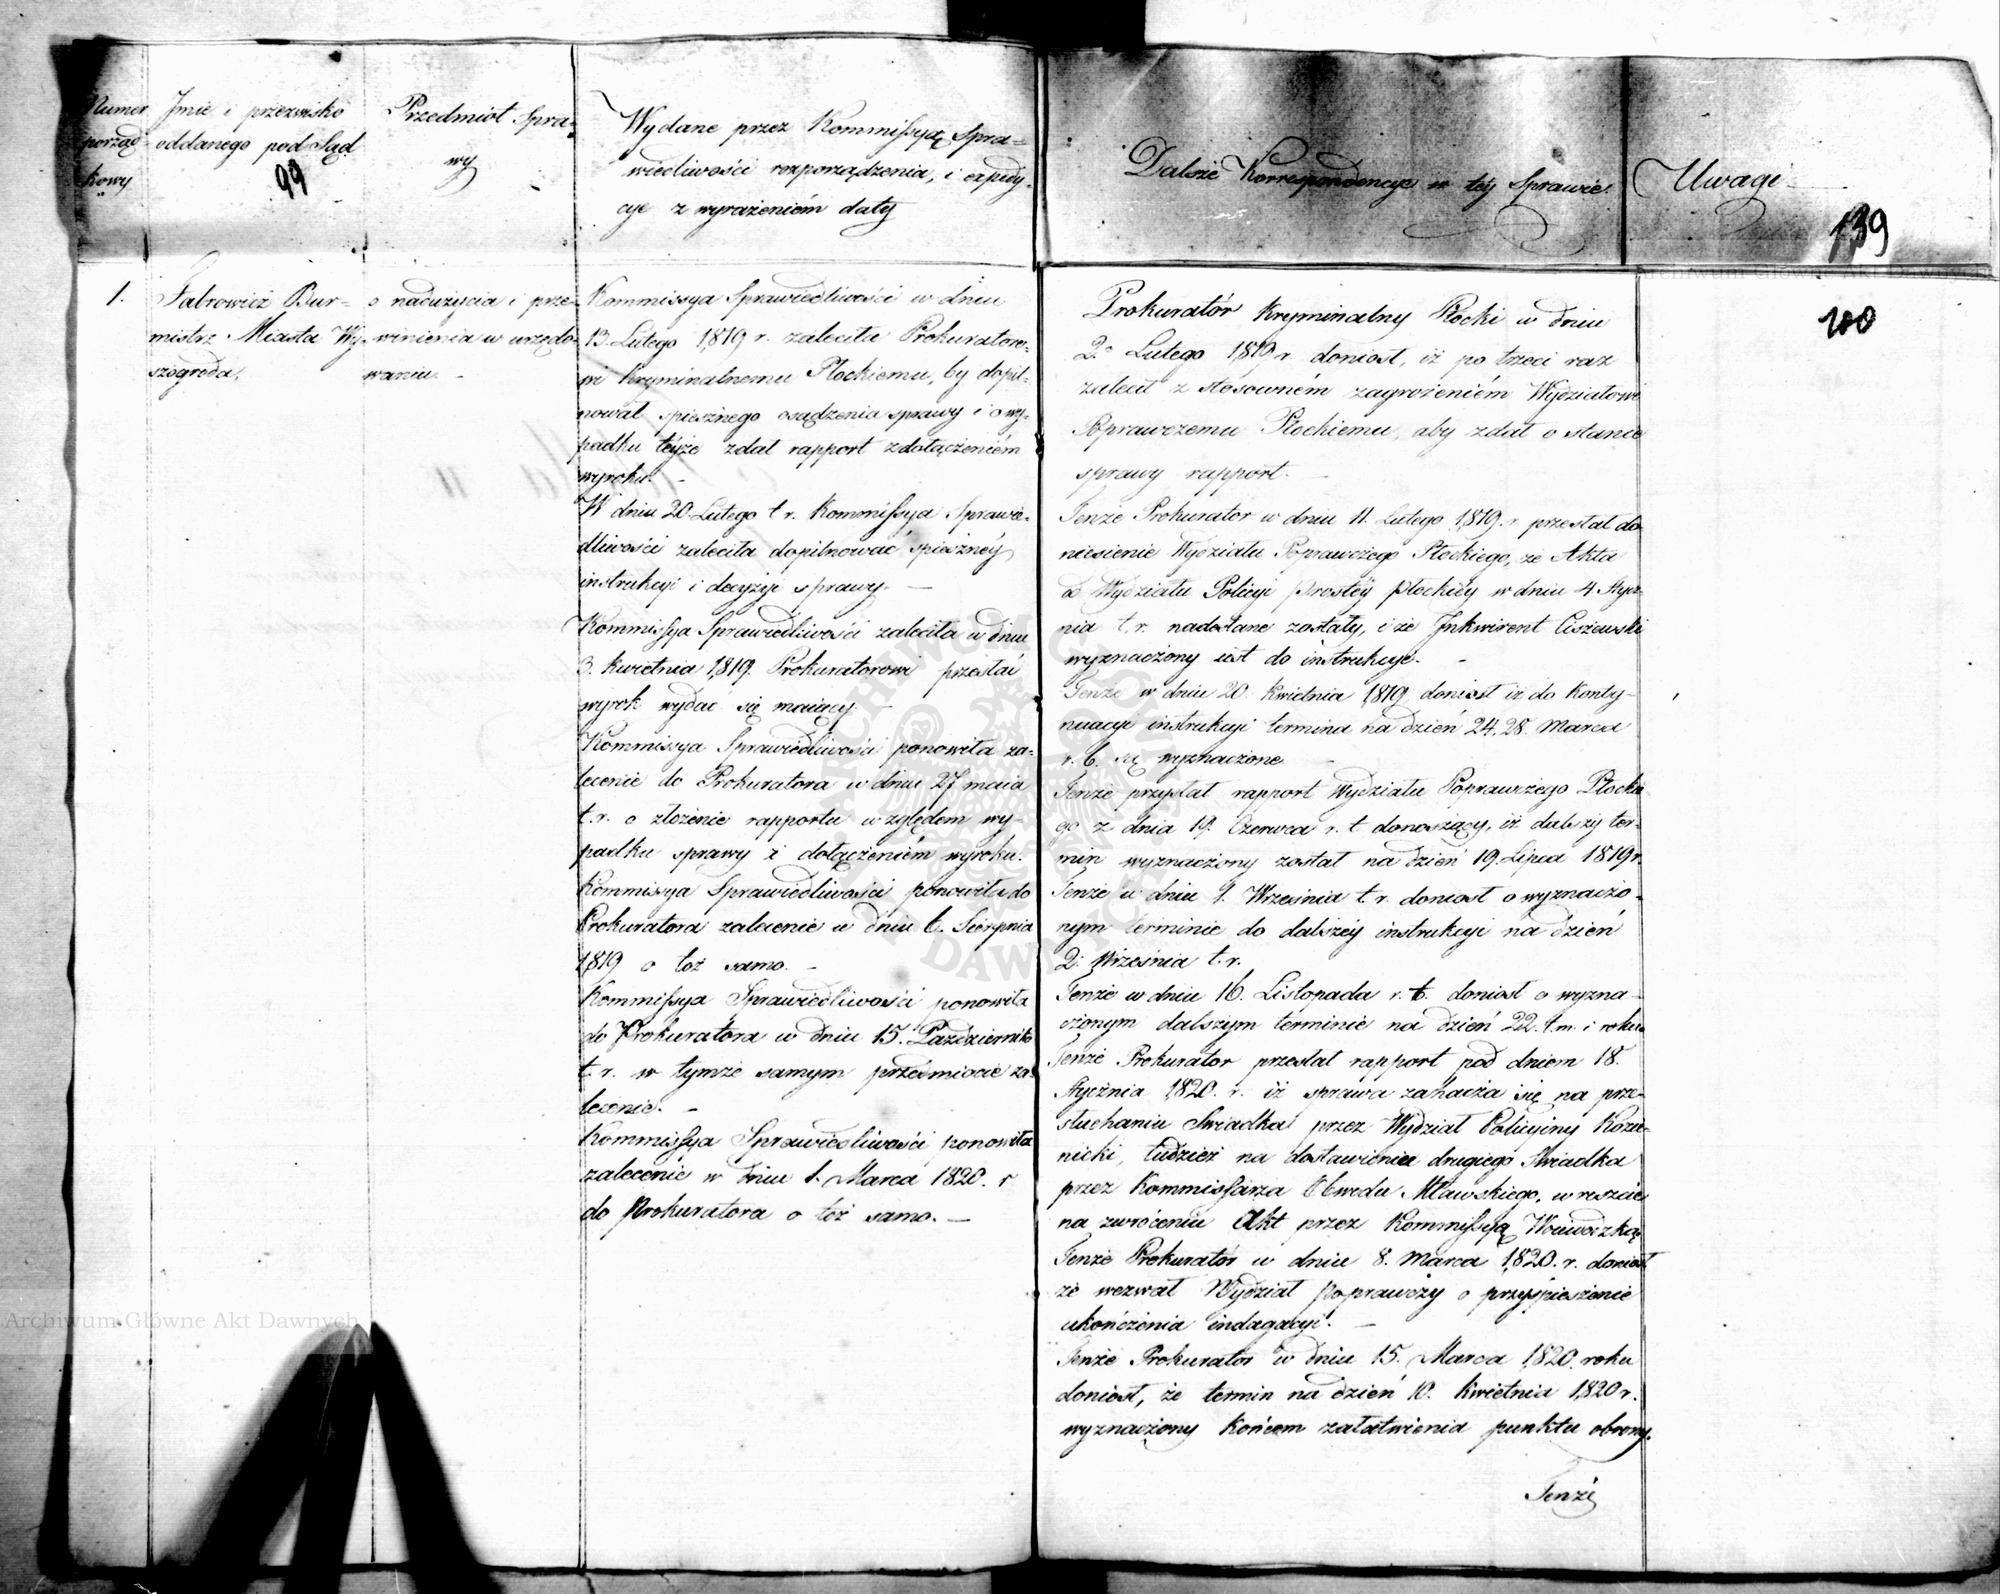 Numer
porząd-
kowy
Jmie i przezwisko
oddanego pod Sąd.
99
Przedmiot Spra-
wy
Wydane przez Kommissyą Spra-
wiedliwości rozporządzenia, i expedy-
cye z wyrażeniem daty
1.
Burmistrz
mistrz Miasta Wy-
szogroda.
o nadużycia i prze-
winienia w urzędo-
waniu. -
Kommissya Sprawiedliwości w dniu
13. Lutego 1819 r. zaleciła Prokuratoro-
wi Kryminalnemu Płockiemu, by dopil-
nował spiesznego osądzenia sprawy i o wy-
padku teyże zdał rapport z dołączeniem
wyroku. -
W dniu 20. Lutego t. r. Kommissya Sprawie-
dliwości zaleciła dopilnować spieszney
instrukcyi i decyzyi sprawy. -
Kommissya Sprawiedliwości zaleciła w dniu
3. kwietnia 1819. Prokuratorowi przesłać
wyrok wydać się maiący. -
Kommissya Sprawiedliwości ponowiła za-
lecenie do Prokuratora w dniu 27 maia
t. r. o złożenie rapportu względem wy-
padku sprawy z dołączeniem wyroku.
Kommissya Sprawiedliwości ponowiła do
Prokuratora zalecenie w dniu 6. Sierpnia
1819 o toż samo. -
Kommissya Sprawiedliwości ponowiła
do Prokuratora w dniu 15. Październik
t. r. w tymże samym przedmiocie za-
lecenie. -
Kommissya Sprawiedliwości ponowiła
zalecenie w dniu 1. Marca 1820. r
do Prokuratora o toż samo. -
Dalsze Korrespondencye w téy Sprawie.
Uwagi
139
100
Prokuratór Kryminalny Płocki w dniu
2. Lutego 1819 r. doniosł, iż po trzeci raz
zalecił z stosowném zagrożeniém Wydziałowi
Poprawczemu Płockiemu, aby zdał o stanie
sprawy rapport. -
Tenże Prokurator w dniu 11. Lutego 1819. r. przesłał do-
niesienie Wydziału Poprawczego Płockiego, że Akta
od Wydziału Policyi prostéy płockiéy w dniu 4 Stycz-
nia t. r. nadesłane zostały, i że Jnkwirent Ciszewski
wyznaczony iest do instrukcyi. -
Tenże w dniu 20. Kwietnia 1819 doniosł iż do Konty-
nuacyi instrukcyi termina na dzień 24, 28. Marca
r. b. są wyznaczone. -
Tenże przysłał rapport Wydziału Poprawczego Płockie-
go z dnia 19. Czerwca r. t donoszący, iż dalszy ter-
min wyznaczony został na dzień 19. Lipca 1819 r.
Tenże w dniu 1. Września t. r. doniosł o wyznaczo-
nym terminie do dalszey instrukcyi na dzień
2. Września t. r.
Tenże w dniu 16. Listopada r. t. doniosł o wyzna-
czonym dalszym terminie na dzień 22. t. m. i roku
Tenże Prokurator przesłał rapport pod dniem 18.
Stycznia 1820. r. iż sprawa zahacza się na prze-
słuchaniu Swiadka przez Wydział Policyiny Kozie-
nicki, tudzież na dostawieniu drugiego Swiadka
przez Kommissarza Obwodu Mławskiego, w reszcie
na zwróceniu Akt przez Kommissyą Woiewodzką.
Tenże Prokuratór w dniu 8. Marca 1820. r. doniosł
że wezwał Wydział poprawczy o przyspieszenie
ukończenia indagacyi. -
Tenże Prokurator w dniu 15. Marca 1820. roku
doniosł, że termin na dzień 10. Kwietnia 1820 r.
wyznaczony końcem załatwienia punktu obrony.
Tenże
Archiwum Główne Akt Dawnych